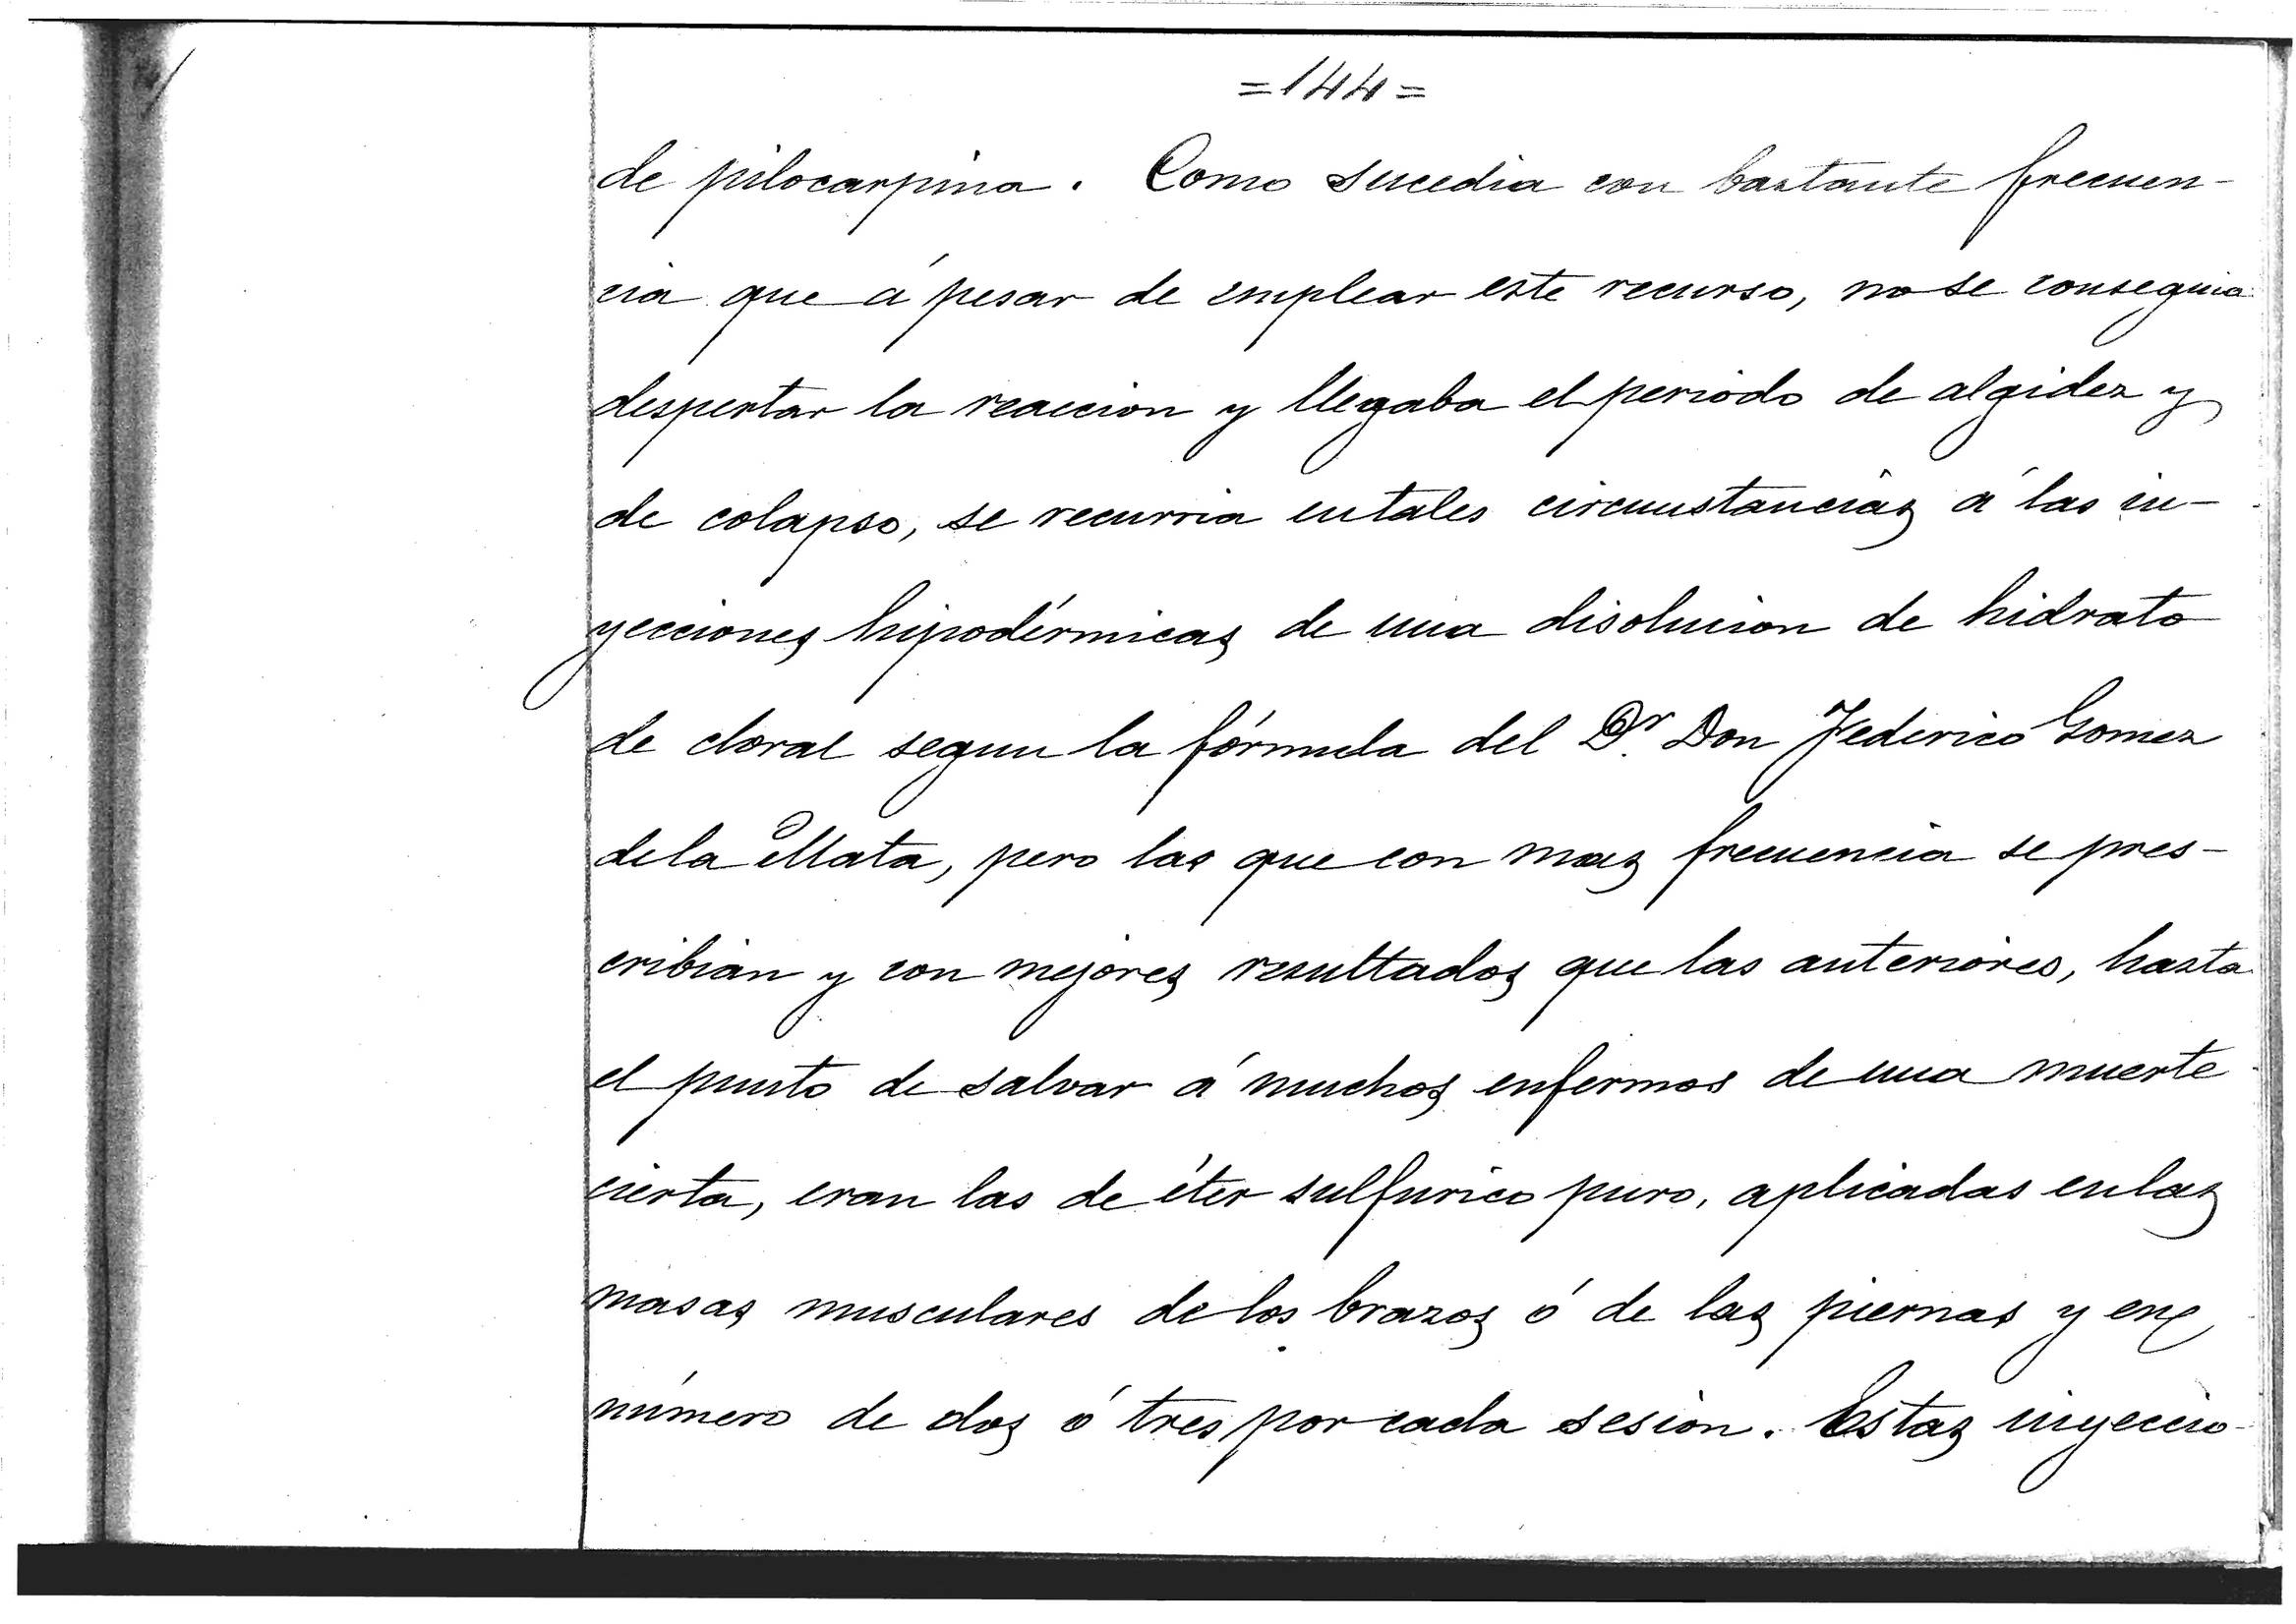 =144=
de pilocarpina. Como sucedia con bastante frecuen-
cia que á pesar de emplear este recurso, no se conseguia
despertar la reaccion y llegaba el periodo de algidez y
de colapso, se recurria en tales circunstancias á las in-
yecciones hipodérmicas de una disolucion de hidrato
de cloral segun la fórmula del Dr. Don Federico Gomez
de la Mata, pero las que con mas frecuencia se pres-
cribian y con mejores resultados que las anteriores, hasta
el punto de salvar á muchos enfermos de una muerte
cierta, eran las de éter sulfurico puro, aplicadas en las
masas musculares de los brazos ó de las piernas y en
número de dos ó tres por cada sesion. Estas inyeccio-